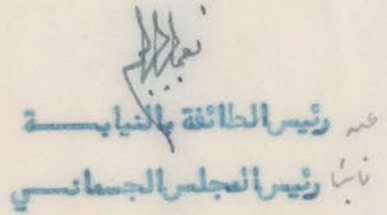 عنه رئيس الطائفة بالنيابة
نائبا رئيس المجلس الجسماني